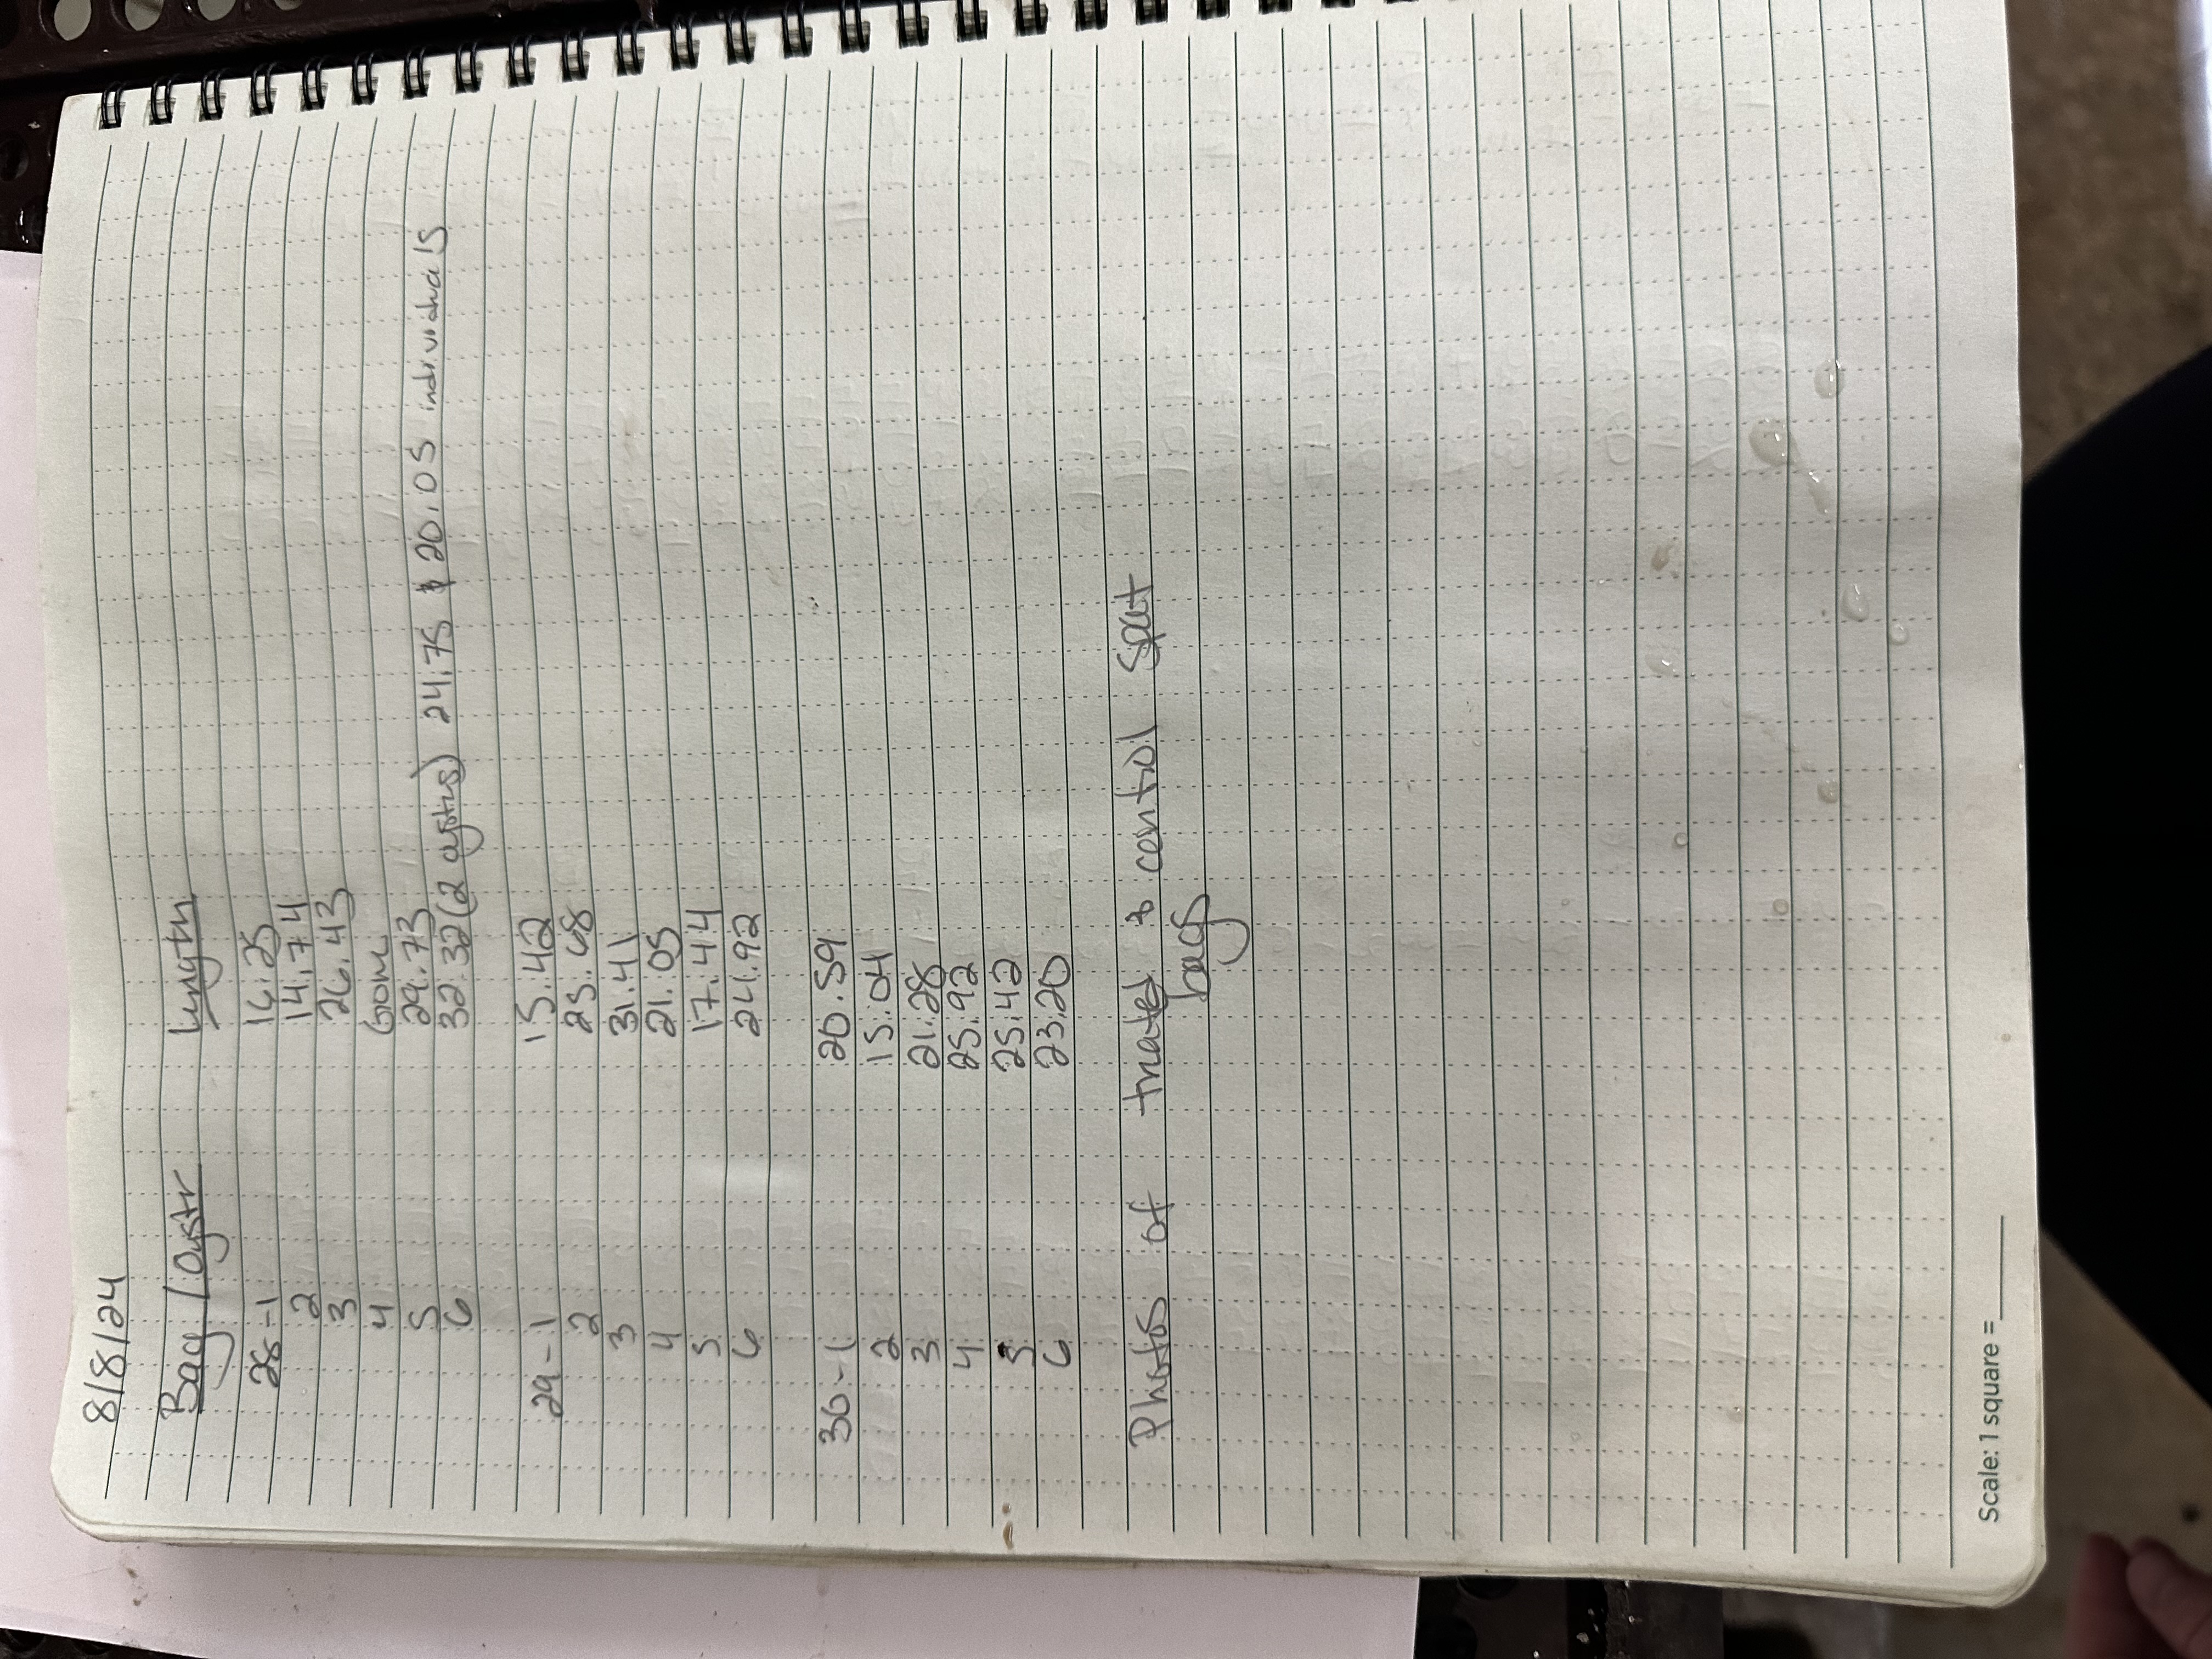 8/8/24
Bag / Oystr length
28-1 16.25
2 14.74
3 26.43
4 Gone
5 29.73
6 32.32 (2 oysters) 24.75 & 20.05 individuals
29-1 15.42
2 25.68
3 31.41
4 21.05
5 17.44
6 24.92
30-1 20.59
2 15.04
3 21.28
4 25.92
5 25.42
6 23.20
Photos of treated & control spat
bags
Scale: 1 square =